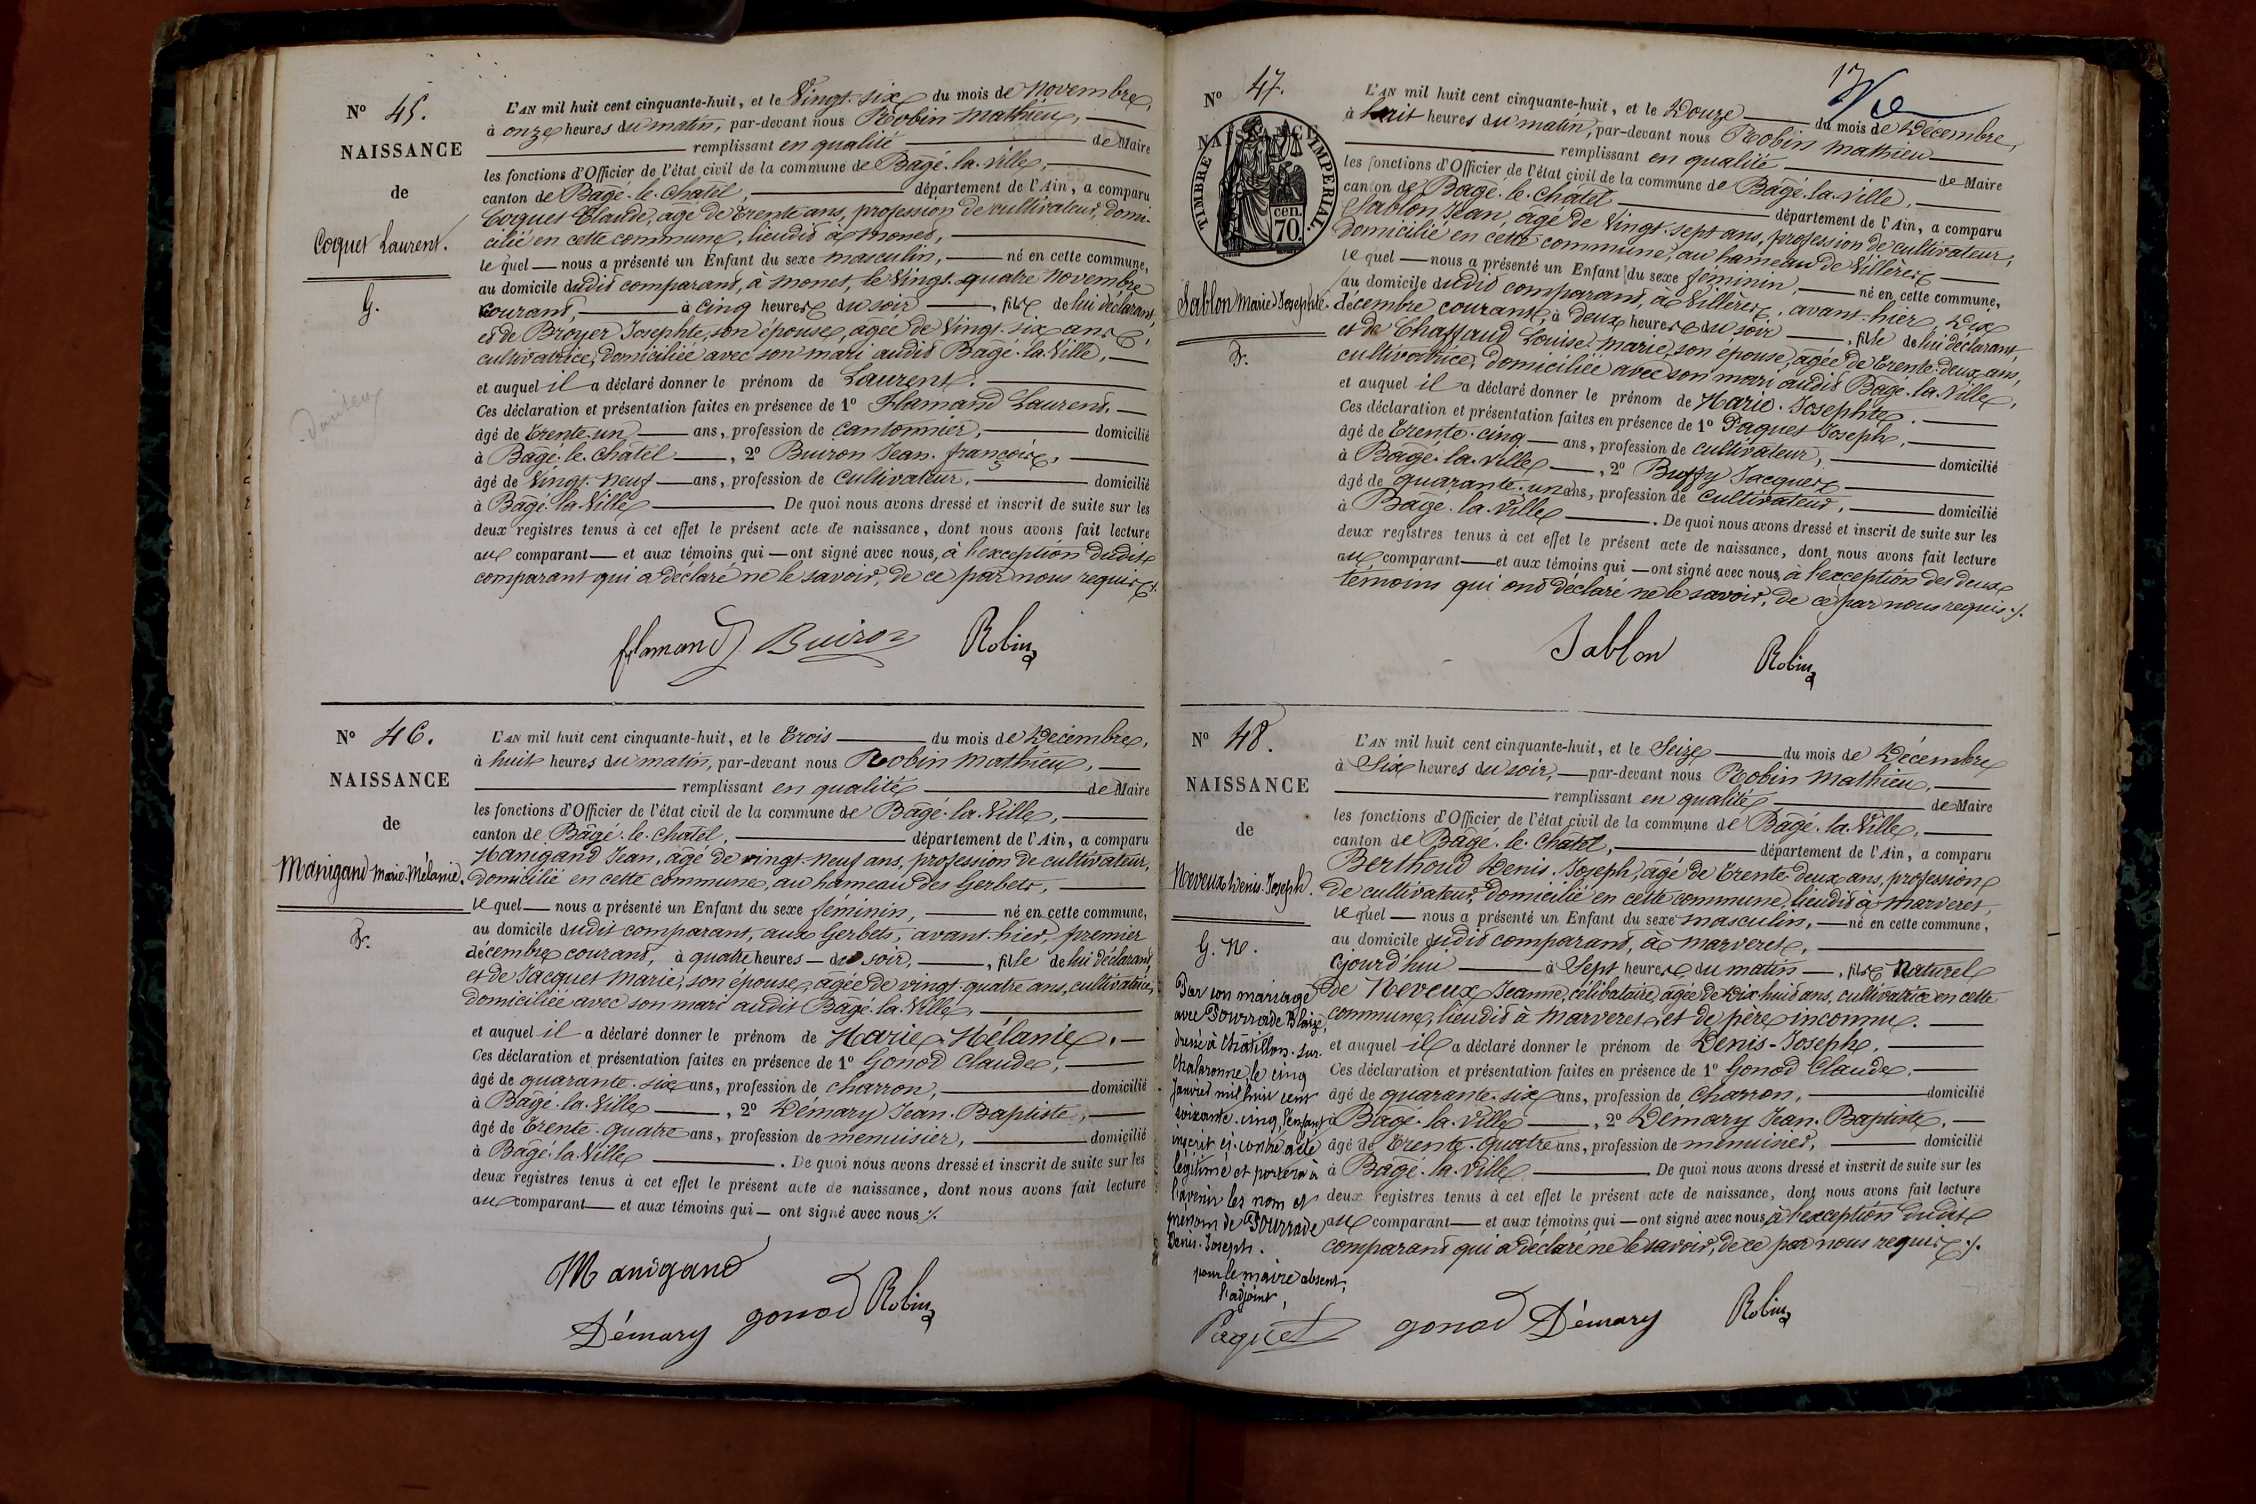 N° 45.
NAISSANCE
de
Coquet Laurent.
G.
L'AN mil huit cent cinquante-huit, et le Vingt-six du mois de Novembre,
à onze heures du matin, par-devant nous Robin Mathieu,
remplissant en qualité de Maire
les fonctions d'Officier de l'état civil de la commune de Bâgé-la-Ville,
canton de Bâgé-le-Châtel, département de l'Ain, a comparu
Coquet Claude, âgé de trente ans, profession de cultivateur, domi-
cilié en cette commune, lieudit à Monet,
lequel nous a présenté un Enfant du sexe masculin, né en cette commune,
au domicile dudit comparant, à Monet, le Vingt-quatre Novembre
courant, à cinq heures du soir, fils de lui déclarant,
et de Broyer Josephte, son épouse, âgée de Vingt-six ans,
cultivatrice, domiciliée avec son mari audit Bâgé-la-Ville,
et auquel il a déclaré donner le prénom de Laurent.
Ces déclaration et présentation faites en présence de 1° Flamand Laurent,
âgé de trente-un ans, profession de cantonnier, domicilié
à Bâgé-le-Châtel, 2° Buiron Jean-françois,
âgé de Vingt-neuf ans, profession de cultivateur, domicilié
à Bâgé-la-Ville. De quoi nous avons dressé et inscrit de suite sur les
deux registres tenus à cet effet le présent acte de naissance, dont nous avons fait lecture
au comparant et aux témoins qui ont signé avec nous, à l'exception dudit
comparant qui a déclaré ne le savoir, de ce par nous requis ./.
flamand Buiron Robin
N° 46.
NAISSANCE
de
Manigand Marie-Mélanie.
F.
L'AN mil huit cent cinquante-huit, et le trois du mois de Décembre,
à huit heures du matin, par-devant nous Robin Mathieu,
remplissant en qualité de Maire
les fonctions d'Officier de l'état civil de la commune de Bâgé-la-Ville,
canton de Bâgé-le-Châtel, département de l'Ain, a comparu
Manigand Jean, âgé de vingt-neuf ans, profession de cultivateur,
domicilié en cette commune, au hameau des Gerbets,
lequel nous a présenté un Enfant du sexe féminin, né en cette commune,
au domicile dudit comparant, aux Gerbets, avant-hier, premier
décembre courant, à quatre heures du soir, fille de lui déclarant,
et de Jacquet Marie, son épouse, âgée de vingt-quatre ans, cultivatrice,
domiciliée avec son mari audit Bâgé-la-Ville,
et auquel il a déclaré donner le prénom de Marie-Mélanie.
Ces déclaration et présentation faites en présence de 1° Gonod Claude,
âgé de quarante-six ans, profession de charron, domicilié
à Bâgé-la-Ville, 2° Démary Jean-Baptiste,
âgé de trente-quatre ans, profession de menuisier, domicilié
à Bâgé-la-Ville. De quoi nous avons dressé et inscrit de suite sur les
deux registres tenus à cet effet le présent acte de naissance, dont nous avons fait lecture
au comparant et aux témoins qui ont signé avec nous ./.
Manigand
Démary gonod Robin
17
N° 47.
NAISSANCE
TIMBRE IMPERIAL
70 cen.
Sablon Marie-Josephte.
F.
L'AN mil huit cent cinquante-huit, et le Douze du mois de Décembre,
à huit heures du matin, par-devant nous Robin Mathieu
remplissant en qualité de Maire
les fonctions d'Officier de l'état civil de la commune de Bâgé-la-Ville,
canton de Bâgé-le-Châtel département de l'Ain, a comparu
Sablon Jean, âgé de Vingt-sept ans, profession de cultivateur,
domicilié en cette commune, au hameau de Villères
lequel nous a présenté un Enfant du sexe féminin, né en cette commune,
au domicile dudit comparant, à Villères, avant-hier, Dix
décembre courant, à deux heures du soir, fille de lui déclarant,
et de Chassaud Louise-Marie, son épouse, âgée de trente-deux ans,
cultivatrice, domiciliée avec son mari audit Bâgé-la-Ville,
et auquel il a déclaré donner le prénom de Marie-Josephte.
Ces déclaration et présentation faites en présence de 1° Paquet Joseph,
âgé de trente-cinq ans, profession de cultivateur, domicilié
à Bâgé-la-Ville, 2° Buffy Jacques
âgé de quarante-un ans, profession de cultivateur, domicilié
à Bâgé-la-Ville. De quoi nous avons dressé et inscrit de suite sur les
deux registres tenus à cet effet le présent acte de naissance, dont nous avons fait lecture
au comparant et aux témoins qui ont signé avec nous, à l'exception des deux
témoins qui ont déclaré ne le savoir, de ce par nous requis ./.
Sablon Robin
N° 48.
NAISSANCE
de
Neveux Denis-Joseph.
G. N.
Par son mariage
avec Pourrade Blaise,
dressé à Châtillon-sur-
Chalaronne, le cinq
Janvier mil huit cent
soixante-cinq, l'enfant
inscrit ci-contre a été
légitimé et portera à
l'avenir les nom et
prénom de Pourrade
Denis-Joseph.
pour le maire absent,
l'adjoint,
Paquet
L'AN mil huit cent cinquante-huit, et le Seize du mois de Décembre
à Six heures du soir, par-devant nous Robin Mathieu,
remplissant en qualité de Maire
les fonctions d'Officier de l'état civil de la commune de Bâgé-la-Ville,
canton de Bâgé-le-Châtel, département de l'Ain, a comparu
Berthoud Denis-Joseph, âgé de trente-deux ans, profession
de cultivateur, domicilié en cette commune, lieudit à Marveret,
lequel nous a présenté un Enfant du sexe masculin, né en cette commune,
au domicile dudit comparant, à Marveret,
cejourd'hui à Sept heures du matin, fils Naturel
de Neveux Jeanne, célibataire, âgée de Dix-huit ans, cultivatrice en cette
commune, lieudit à Marveret, et de père inconnu.
et auquel il a déclaré donner le prénom de Denis-Joseph.
Ces déclaration et présentation faites en présence de 1° Gonod Claude,
âgé de quarante-six ans, profession de Charron, domicilié
à Bâgé-la-Ville, 2° Démary Jean-Baptiste,
âgé de trente-quatre ans, profession de menuisier, domicilié
à Bâgé-la-Ville. De quoi nous avons dressé et inscrit de suite sur les
deux registres tenus à cet effet le présent acte de naissance, dont nous avons fait lecture
au comparant et aux témoins qui ont signé avec nous, à l'exception dudit
comparant qui a déclaré ne le savoir, de ce par nous requis ./.
gonod Démary Robin